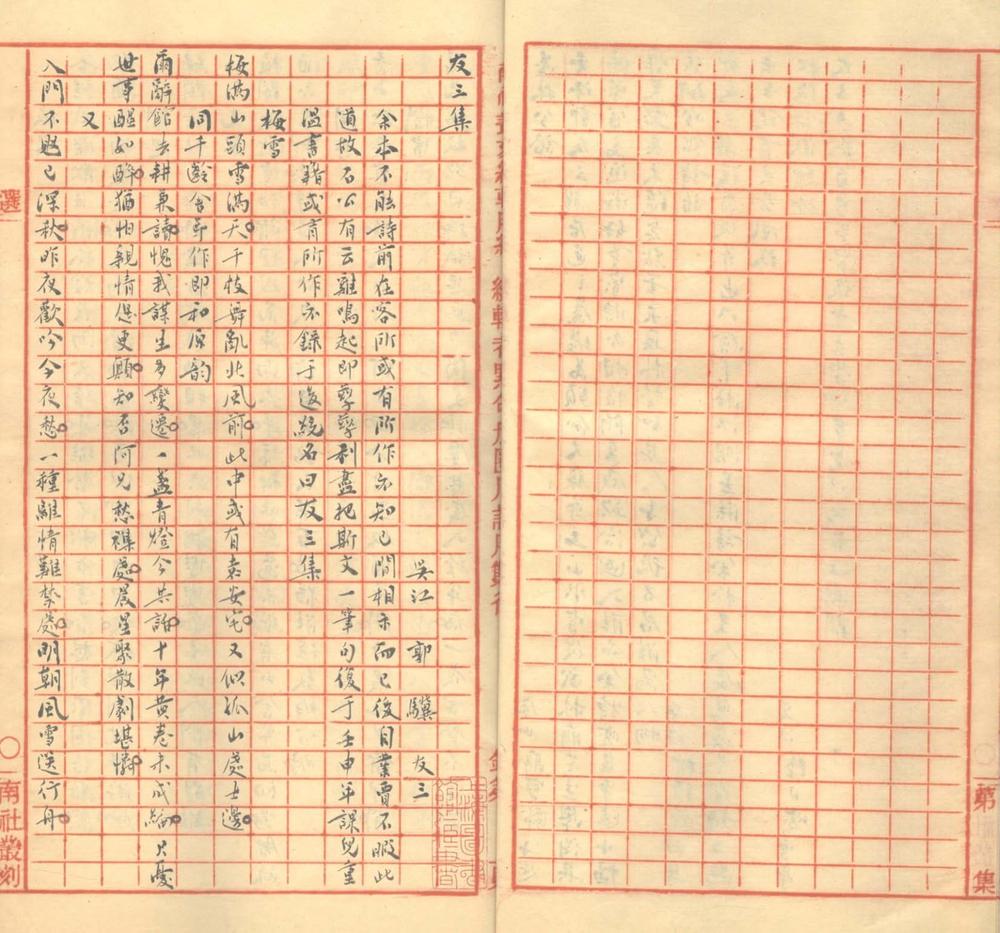 友三集
吳江 郭驥 友三
余本不能詩前在客所或有所作亦知己間相示而已後因業賈不暇此
道故石公有云雞鳴起即孳孳利盡把斯文一筆勾後于壬申年課兒重
溫書籍或有所作亦錄于後統名曰友三集
梅雪
梅滿山頭雪滿天千枝舞亂北風前此中或有袁安宅又似孤山處士邊
同千齡舍弟作即和原韵
爾辭館去耕兼讀愧我謀生多變遷一盞青燈今共話十年黃卷未成編人憂
世事醒如醉猶怕親情促更顛知否阿兄愁襍處晨星聚散劇堪憐
又
入門不覺已深秋昨夜歡吟今夜愁一種離情難禁處明朝風雪送行舟
選
南社叢刻
第
集